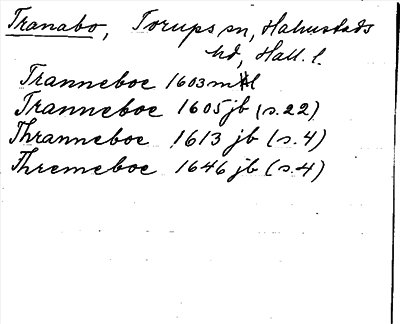 Tranabo, Torups sn, Halmstads
hd, Hall. l.
Tranneboe 1603 mtl
Tranneboe 1605 jb (s. 22)
Thranneboe 1613 jb (s. 4)
Thremeboe 1646 jb (s. 4)